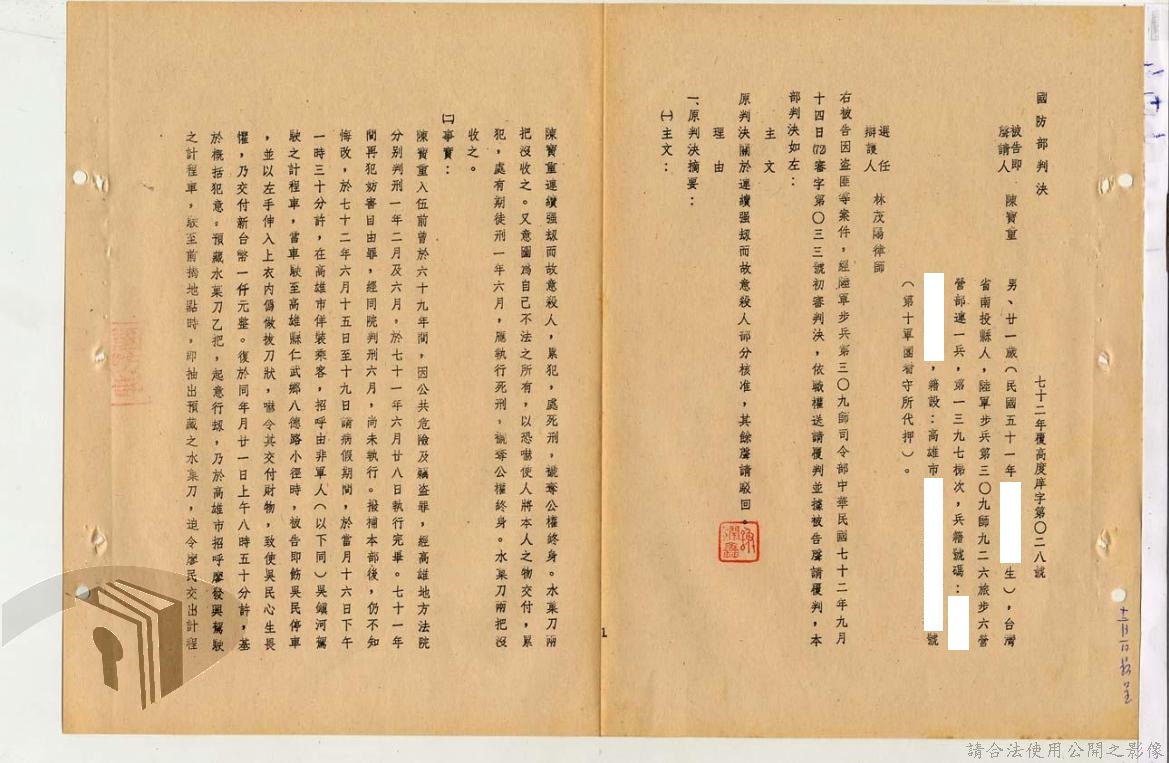 國防部判決
七十二年覆高度庠字第〇二八號
被告即
聲請人
陳寶重
男、廿一歲（民國五十一年
生），台灣
省南投縣人，陸軍步兵第三〇九師九二六旅步六營
營部連一兵，第一三九七梯次，兵籍號碼：
，籍設：高雄市
號
（第十軍團看守所代押）。
選任
辯護人
林茂陽律師
右被告因盜匪等案件，經陸軍步兵第三〇九師司令部中華民國七十二年九月
十四日(72)審字第〇三三號初審判決，依職權送請覆判並據被告聲請覆判，本
部判決如左：
主文
原判決關於連續强刼而故意殺人部分核准，其餘聲請駁回。
理由
一、原判決摘要：
㈠主文：
1
陳寶重連續强刼而故意殺人，累犯，處死刑，褫奪公權終身。水菓刀兩
把沒收之。又意圖爲自己不法之所有，以恐嚇使人將本人之物交付，累
犯，處有期徒刑一年六月，應執行死刑，褫奪公權終身。水菓刀兩把沒
收之。
㈡事實：
陳寶重入伍前曾於六十九年間，因公共危險及竊盜罪，經高雄地方法院
分別判刑一年二月及六月，於七十一年六月廿八日執行完畢。七十一年
間再犯妨害自由罪，經同院判刑六月，尚未執行。撥補本部後，仍不知
悔改，於七十二年六月十五日至十九日請病假期間，於當月十六日下午
一時三十分許，在高雄市佯裝乘客，招呼由非軍人（以下同）吳鎭河駕
駛之計程車，當車駛至高雄縣仁武鄉八德路小徑時，被告即飭吳民停車
，並以左手伸入上衣內僞做拔刀狀，嚇令其交付財物，致使吳民心生畏
懼，乃交付新台幣一仟元整。復於同年月廿一日上午八時五十分許，基
於概括犯意。預藏水菓刀乙把，起意行刼，乃於高雄市招呼廖發興駕駛
之計程車，駛至前揭地點時，即抽出預藏之水菓刀，迫令廖民交出計程
請合法使用公開之影像